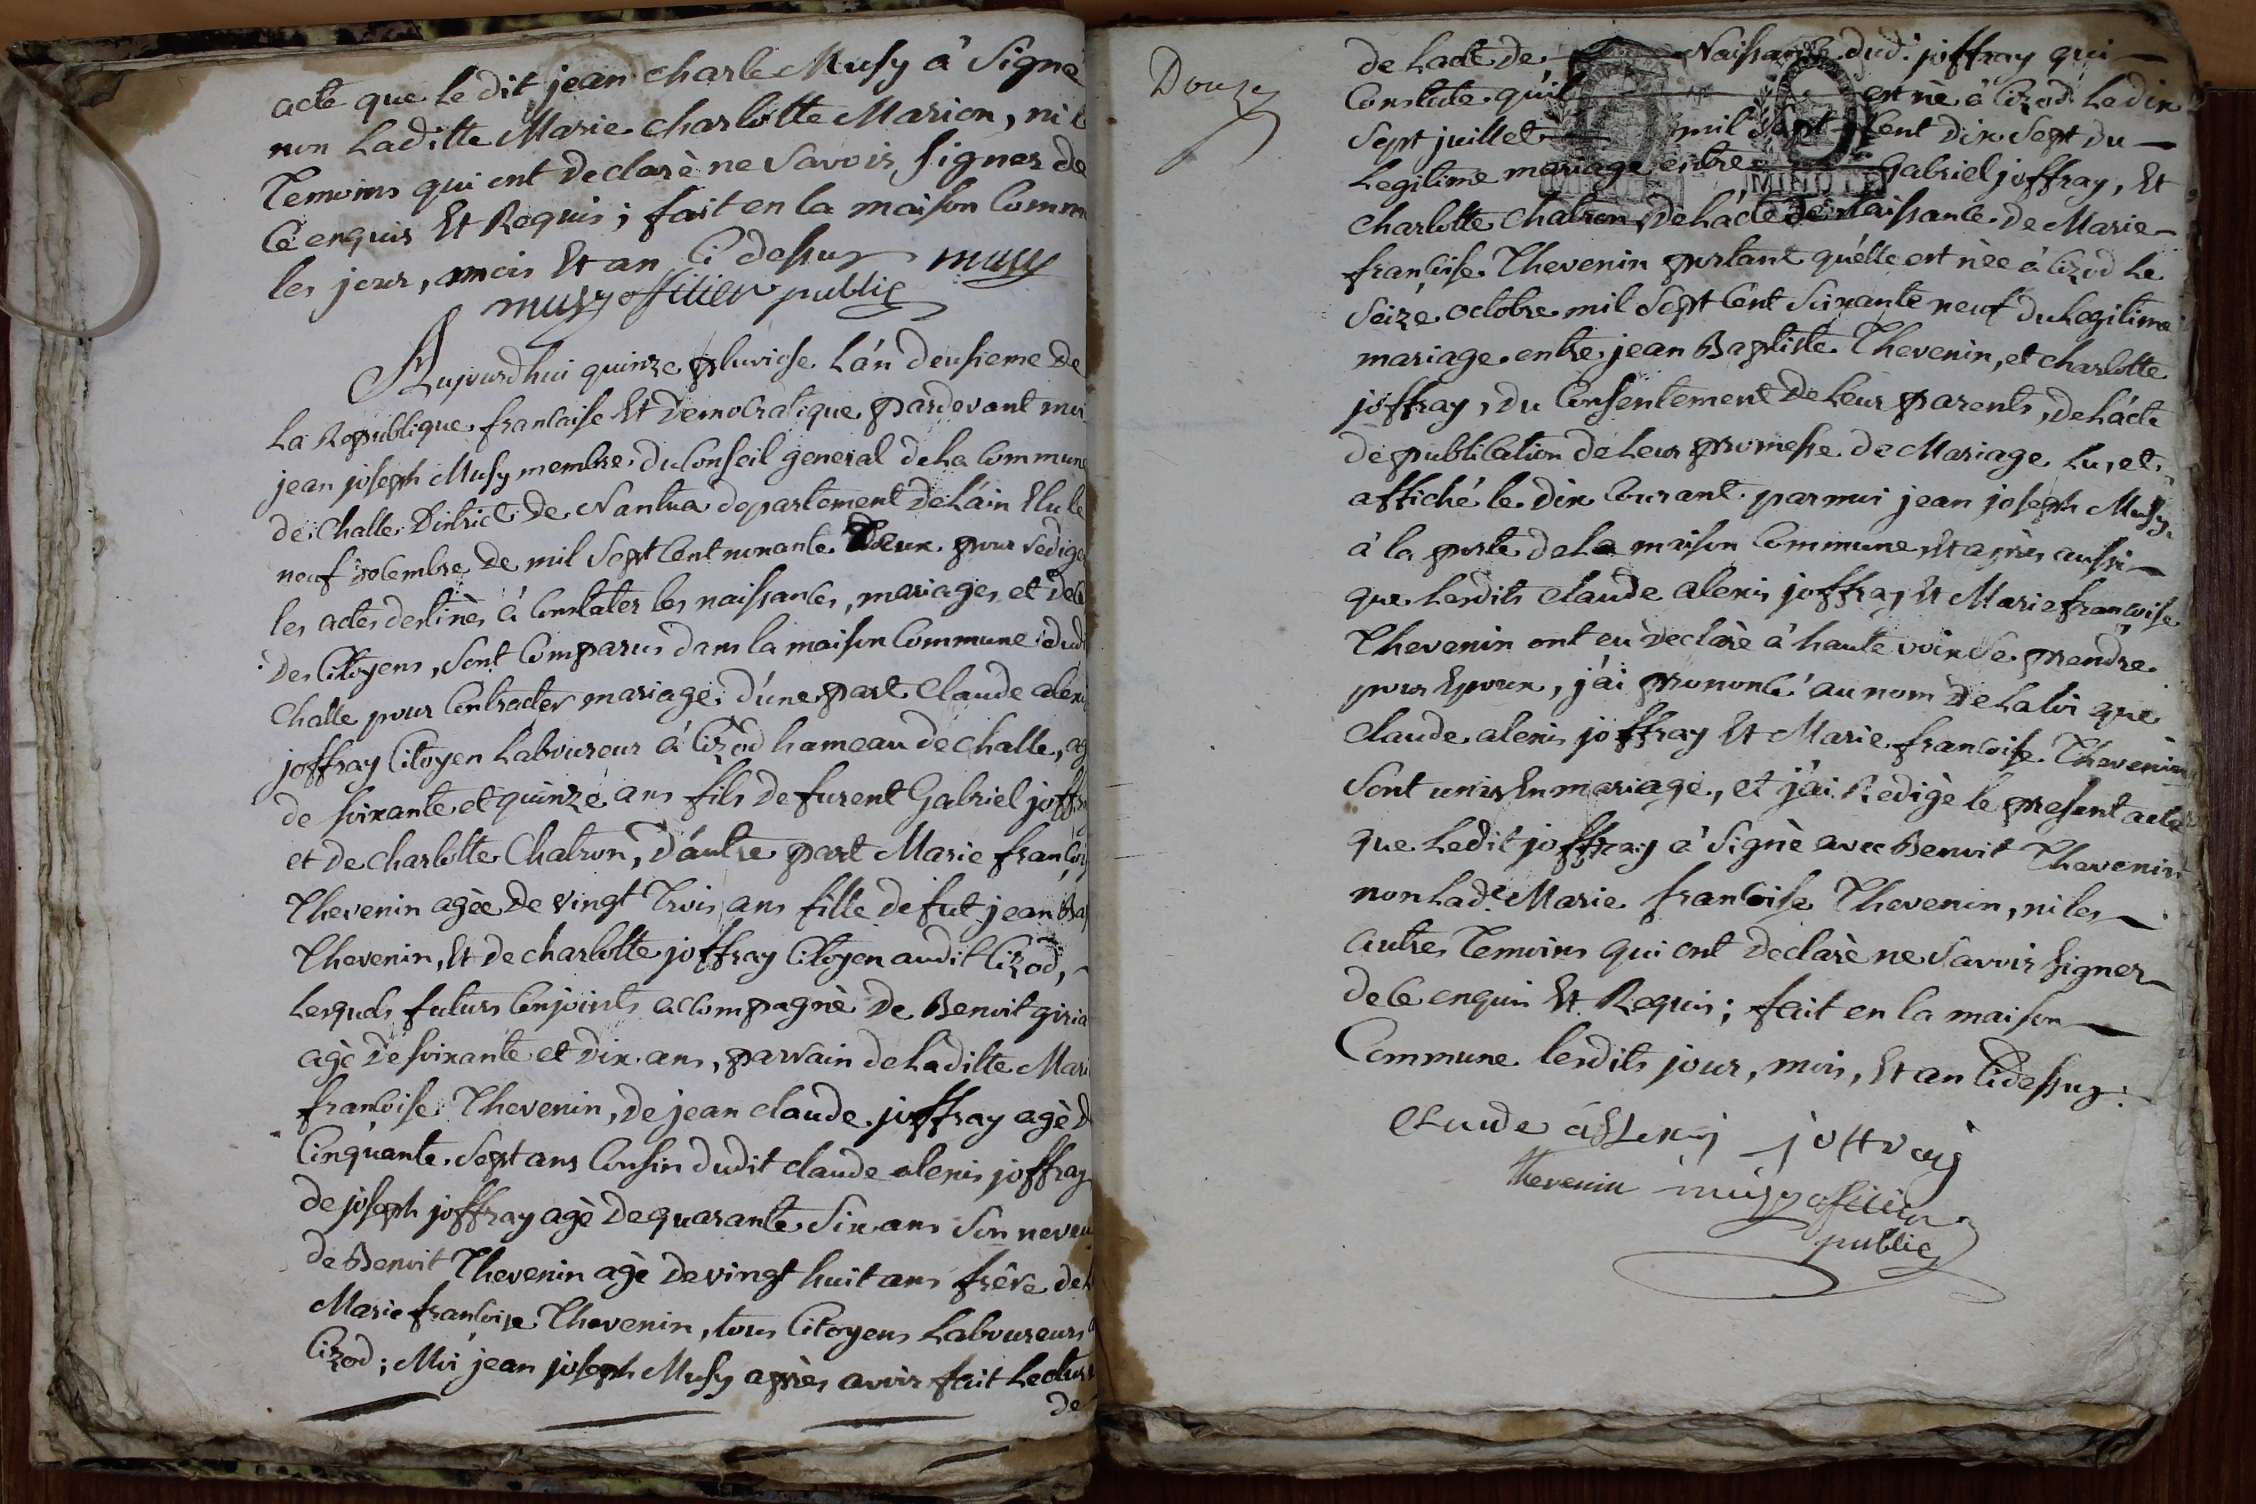 acte que le dit jean charle Musy à Signé
non laditte Marie charlotte Marion, ni l
Temoins qui ont declarè ne Savoir Signer de
Ce enquis Et Requis; fait en la maison Comm
les jour, mois Et an Ci dessus musy
musy officier public
Aujourdhui quinze pluviose L'an deusieme de
La Republique francaise Et Democratique pardevant moi
jean joseph Musy membre du Conseil general de la Commune
de Challe District de Nantua departement de L'ain Elu le
neuf Xbre de mil Sept Cent nonante Deux pour redige
les actes destinès à Constater les naissances, mariages et dece
des Citoyens, sont Comparus dans la maison Commune dud
Challe pour Contracter mariage; d'une part Claude alexi
joffray Citoyen Laboureur à Cizod hameau de challe, ag
de soixante et quinze ans fils de furent Gabriel joffr
et de charlotte Chatron, d'autre part Marie francoi
Thevenin agèe de vingt Trois ans fille de fut jean Bap
Thevenin, Et de charlotte joffray Citoyen audit Cizod,
Lesquels futurs Conjoints accompagnè de Benoit giria
agè de soixante et dix ans, parrain de Laditte Mari
francoise Thevenin, de jean claude joffray agè d
Cinquante Sept ans Cousin dudit claude alexis joffray
de joseph joffray agè de quarante Six ans Son neveu
de Benoit Thevenin agè de vingt huit ans frère de l
Marie francoise Thevenin, tous Citoyens Laboureurs a
Cizod; Moi jean joseph Musy après avoir fait Lectur
de
Douze
de Lacte de Naissance dud. joffray qui
Constate qu'il est nè à Cizod Le dix
Sept juillet mil Sept Cent Dix Sept du
Legitime mariage entre Gabriel joffray, Et
MINUTE
charlotte Chatron, de L'acte de Naissance de Marie
francoise Thevenin portant qu'elle est nèe à Cizod Le
Seize octobre mil Sept Cent Soixante neuf du Legitime
mariage entre jean Baptiste Thevenin, et charlotte
joffray, du Consentement de Leur parents, de L'acte
de publication de Leur promesse de Mariage Lu, et
affiché le dix Courant par moi jean joseph Musy
à la porte de La maison Commune, Et après aussi
que Lesdits claude alexis joffray Et Marie francoise
Thevenin ont eù declarè à haute voix Se prendre
pour Epoux, j'ai prononcé au nom de La loi que
Claude alexis joffray Et Marie francoise Thevenin
Sont unis En mariage, et j'ai Redigè le present acte
que Ledit joffray à Signè avec Benoit Thevenin
non Lad.e Marie francoise Thevenin, ni les
autres Temoins qui ont declarè ne Savoir Signer
de Ce enquis Et Requis; fait en la maison
Commune lesdits jour, mois, Et an Cidessus.
Claude joffray
thevenin musy officier
public